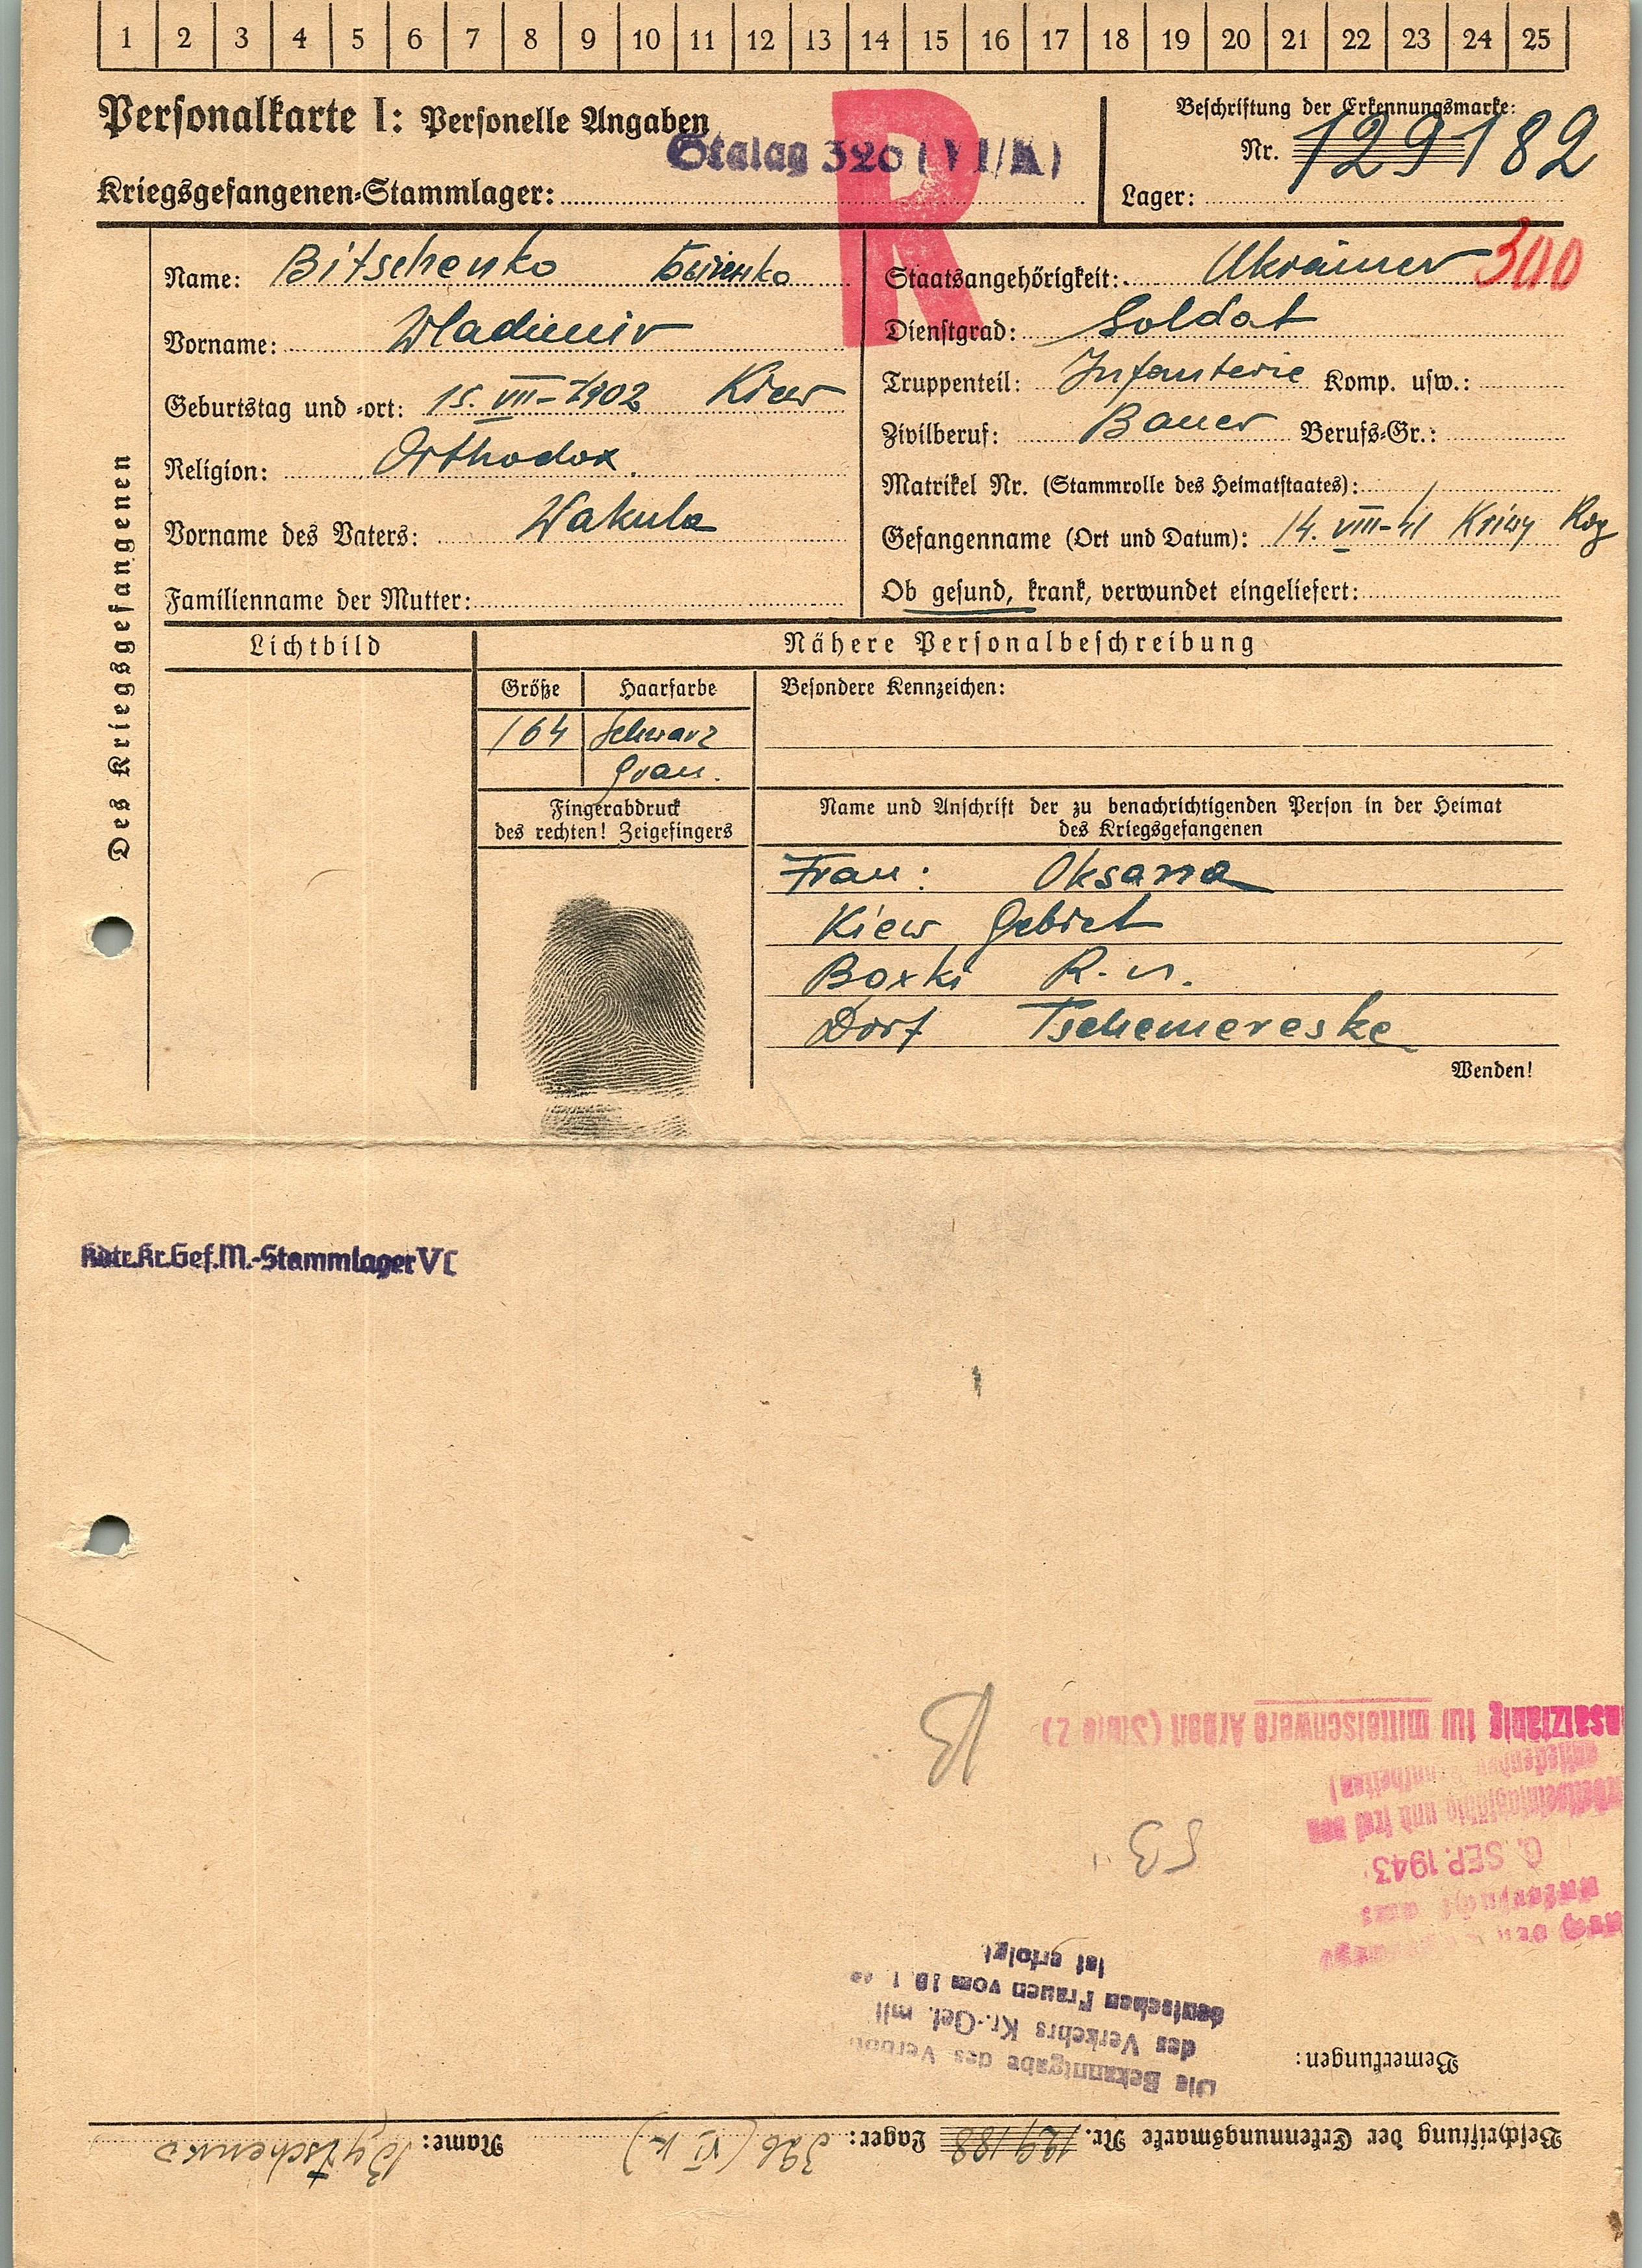 1 2 3 4 5 6 7 8 9 10 11 12 13 14 15 16 17 18 19 20 21 22 23 24 25
Personalkarte I: Personelle Angaben
Stalag 326 (VI/K)
Kriegsgefangenen-Stammlager:
R
Beschriftung der Erkennungsmarke:
Nr. 129182
Lager:
Des Kriegsgefangenen
Name: Bitschenko
Vorname: Wladimir
Geburtstag und -ort: 15. VIII-1902 Kiew
Religion: Orthodox.
Vorname des Vaters: Wakula
Familienname der Mutter:
Staatsangehörigkeit: Ukrainer 300
Dienstgrad: Soldat
Truppenteil: Infanterie Komp. usw.:
Zivilberuf: Bauer Berufs-Gr.:
Matrikel Nr. (Stammrolle des Heimatstaates):
Gefangenname (Ort und Datum): 14. VIII-41 Kriwy Rog
Ob gesund, krank, verwundet eingeliefert:
Lichtbild
Nähere Personalbeschreibung
Größe Haarfarbe
164 schwarz
grau.
Besondere Kennzeichen:
Fingerabdruck
des rechten! Zeigefingers
Name und Anschrift der zu benachrichtigenden Person in der Heimat
des Kriegsgefangenen
Frau: Oksana
Kiew Gebiet
R-n.
Dorf Tschemereske
Wenden!
Kdtr.Kr.Gef.M.-Stammlager VI
Beschriftung der Erkennungsmarke Nr. 129188 Lager: 326 (VI K) Name: Bytschenko
Bemerkungen:
Die Bekanntgabe des
des Verkehrs Kr.-Gef. mit
deutschen Frauen vom
ist erfolgt
6. SEP. 1943
und frei von
für mittelschwere Arbeit (Stufe 2)
53
B